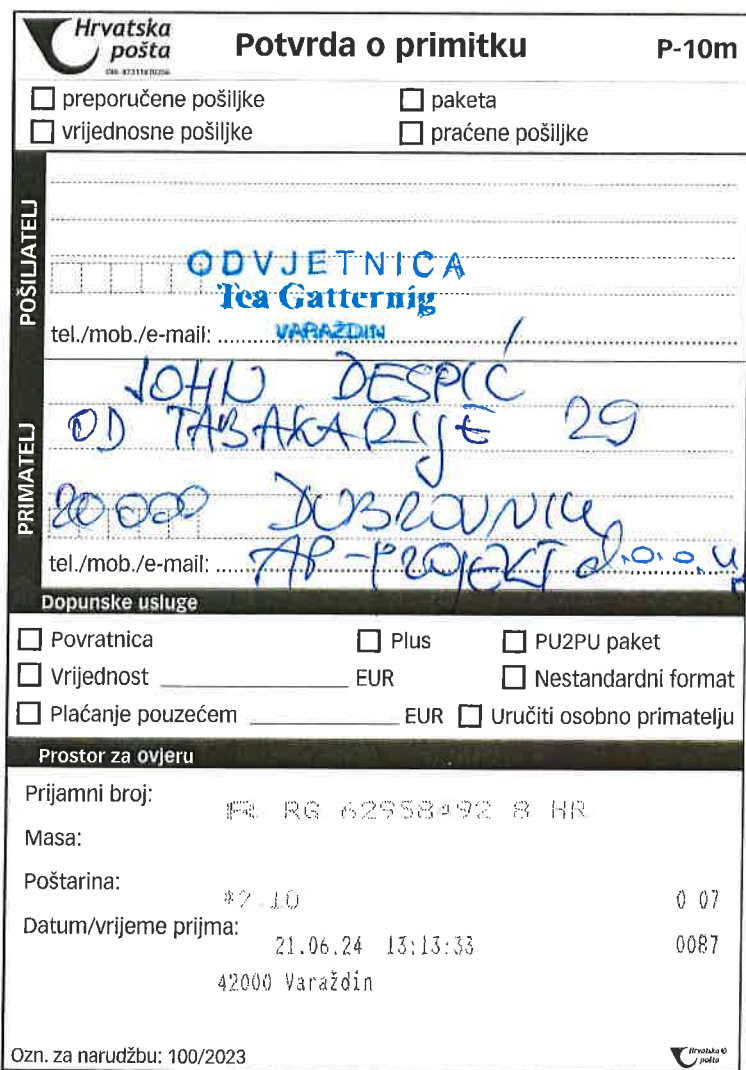 Hrvatska pošta
Potvrda o primitku
P-10m
preporučene pošiljke
paketa
vrijednosne pošiljke
praćene pošiljke
POŠILJATELJ
ODVJETNICA
Tea Gatternig
VARAŽDIN
tel./mob./e-mail:
PRIMATELJ
JOHN DESPIĆ
OD TABAKARIJE 29
20000 DUBROVNIK
tel./mob./e-mail: AP-PROJEKT d.o.o. u
Dopunske usluge
Povratnica
Plus
PU2PU paket
Vrijednost EUR
Nestandardni format
Plaćanje pouzećem EUR
Uručiti osobno primatelju
Prostor za ovjeru
Prijamni broj: R RG 62958492 8 HR
Masa:
Poštarina: *2.10 0 07
Datum/vrijeme prijma: 21.06.24 13:13:33 0087
42000 Varaždin
Ozn. za narudžbu: 100/2023
Hrvatska pošta